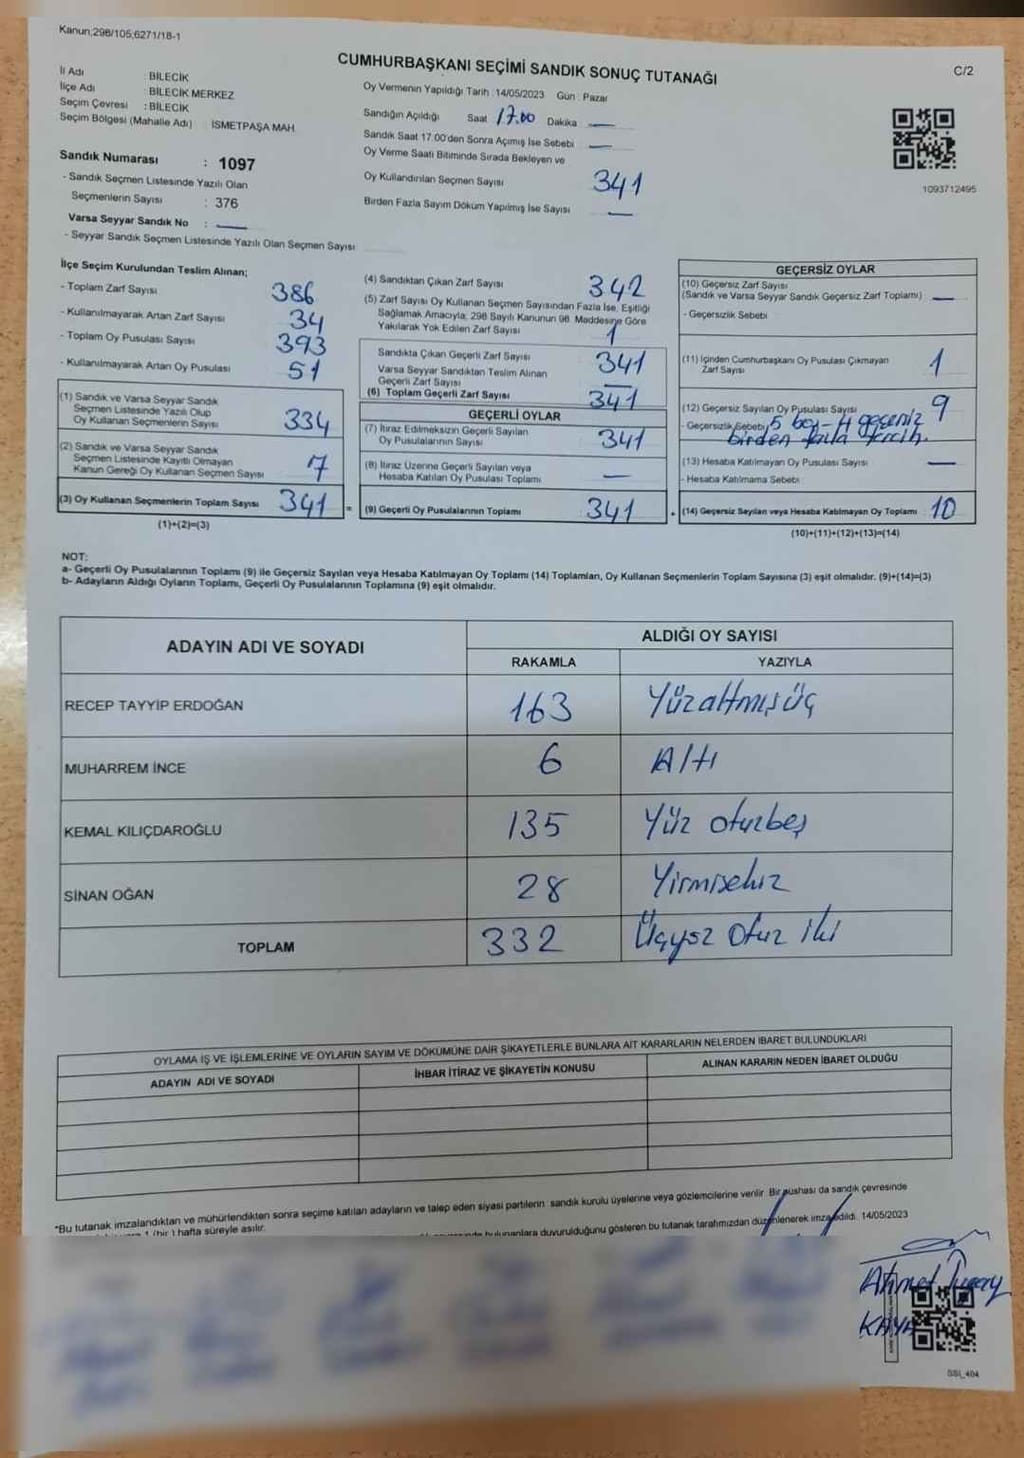 Kanun;298/105;6271/18-1
CUMHURBAŞKANI SEÇİMİ SANDIK SONUÇ TUTANAĞI
C/2
İl Adı : BİLECİK
İlçe Adı : BİLECİK MERKEZ
Seçim Çevresi : BİLECİK
Seçim Bölgesi (Mahalle Adı) : İSMETPAŞA MAH.
Oy Vermenin Yapıldığı Tarih :14/05/2023 Gün : Pazar
Sandığın Açıldığı Saat 17.00 Dakika —
Sandık Saat 17:00'den Sonra Açımış İse Sebebi —
Oy Verme Saati Bitiminde Sırada Bekleyen ve
Oy Kullandırılan Seçmen Sayısı 341
Birden Fazla Sayım Döküm Yapılmış İse Sayısı —
1093712495
Sandık Numarası : 1097
- Sandık Seçmen Listesinde Yazılı Olan
Seçmenlerin Sayısı : 376
Varsa Seyyar Sandık No : —
- Seyyar Sandık Seçmen Listesinde Yazılı Olan Seçmen Sayısı
İlçe Seçim Kurulundan Teslim Alınan;
- Toplam Zarf Sayısı 386
- Kullanılmayarak Artan Zarf Sayısı 34
- Toplam Oy Pusulası Sayısı 393
- Kullanılmayarak Artan Oy Pusulası 51
(1) Sandık ve Varsa Seyyar Sandık
Seçmen Listesinde Yazılı Olup
Oy Kullanan Seçmenlerin Sayısı 334
(2) Sandık ve Varsa Seyyar Sandık
Seçmen Listesinde Kayıtlı Olmayan
Kanun Gereği Oy Kullanan Seçmen Sayısı 7
(3) Oy Kullanan Seçmenlerin Toplam Sayısı 341
(1)+(2)=(3)
(4) Sandıktan Çıkan Zarf Sayısı 342
(5) Zarf Sayısı Oy Kullanan Seçmen Sayısından Fazla İse, Eşitliği
Sağlamak Amacıyla; 298 Sayılı Kanunun 98. Maddesine Göre
Yakılarak Yok Edilen Zarf Sayısı 1
Sandıkta Çıkan Geçerli Zarf Sayısı 341
Varsa Seyyar Sandıktan Teslim Alınan
Geçerli Zarf Sayısı —
(6) Toplam Geçerli Zarf Sayısı 341
GEÇERLİ OYLAR
(7) İtiraz Edilmeksizin Geçerli Sayılan
Oy Pusulalarının Sayısı 341
(8) İtiraz Üzerine Geçerli Sayılan veya
Hesaba Katılan Oy Pusulası Toplamı —
= (9) Geçerli Oy Pusulalarının Toplamı 341
GEÇERSİZ OYLAR
(10) Geçersiz Zarf Sayısı
(Sandık ve Varsa Seyyar Sandık Geçersiz Zarf Toplamı) —
- Geçersizlik Sebebi
(11) İçinden Cumhurbaşkanı Oy Pusulası Çıkmayan
Zarf Sayısı 1
(12) Geçersiz Sayılan Oy Pusulası Sayısı 9
- Geçersizlik Sebebi 5 boş - 4 geçersiz
birden fazla tercih.
(13) Hesaba Katılmayan Oy Pusulası Sayısı —
- Hesaba Katılmama Sebebi
+ (14) Geçersiz Sayılan veya Hesaba Katılmayan Oy Toplamı 10
(10)+(11)+(12)+(13)=(14)
NOT:
a- Geçerli Oy Pusulalarının Toplamı (9) ile Geçersiz Sayılan veya Hesaba Katılmayan Oy Toplamı (14) Toplamları, Oy Kullanan Seçmenlerin Toplam Sayısına (3) eşit olmalıdır. (9)+(14)=(3)
b- Adayların Aldığı Oyların Toplamı, Geçerli Oy Pusulalarının Toplamına (9) eşit olmalıdır.
ADAYIN ADI VE SOYADI
ALDIĞI OY SAYISI
RAKAMLA YAZIYLA
RECEP TAYYİP ERDOĞAN 163 Yüzaltmışüç
MUHARREM İNCE 6 Altı
KEMAL KILIÇDAROĞLU 135 Yüz otuzbeş
SİNAN OĞAN 28 Yirmisekiz
TOPLAM 332 Üçyüz Otuz iki
OYLAMA İŞ VE İŞLEMLERİNE VE OYLARIN SAYIM VE DÖKÜMÜNE DAİR ŞİKAYETLERLE BUNLARA AİT KARARLARIN NELERDEN İBARET BULUNDUKLARI
ADAYIN ADI VE SOYADI İHBAR İTİRAZ VE ŞİKAYETİN KONUSU ALINAN KARARIN NEDEN İBARET OLDUĞU
*Bu tutanak imzalandıktan ve mühürlendikten sonra seçime katılan adayların ve talep eden siyasi partilerin sandık kurulu üyelerine veya gözlemcilerine verilir. Bir nüshası da sandık çevresinde
1 (bir) hafta süreyle asılır.
bulunanlara duyurulduğunu gösteren bu tutanak tarafımızdan düzenlenerek imza edildi. 14/05/2023
Ahmet
KAYA
SSI_404